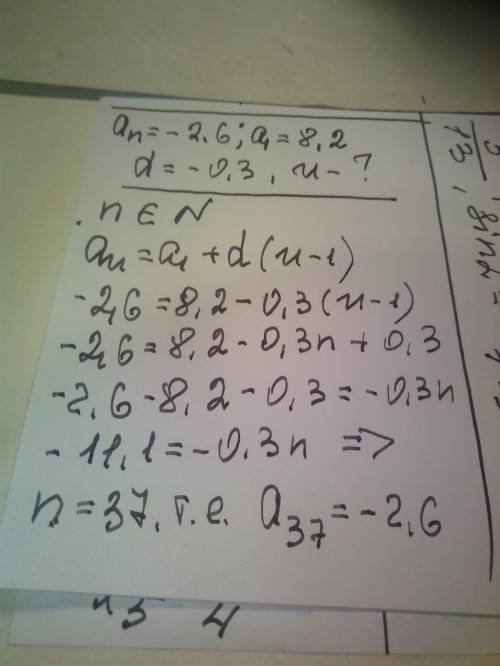 an = -2,6; a1 = 8,2
d = -0,3, n - ?
n ∈ N
an = a1 + d(n-1)
-2,6 = 8,2 - 0,3(n-1)
-2,6 = 8,2 - 0,3n + 0,3
-2,6 - 8,2 - 0,3 = -0,3n
-11,1 = -0,3n =>
n = 37, т.е. a37 = -2,6